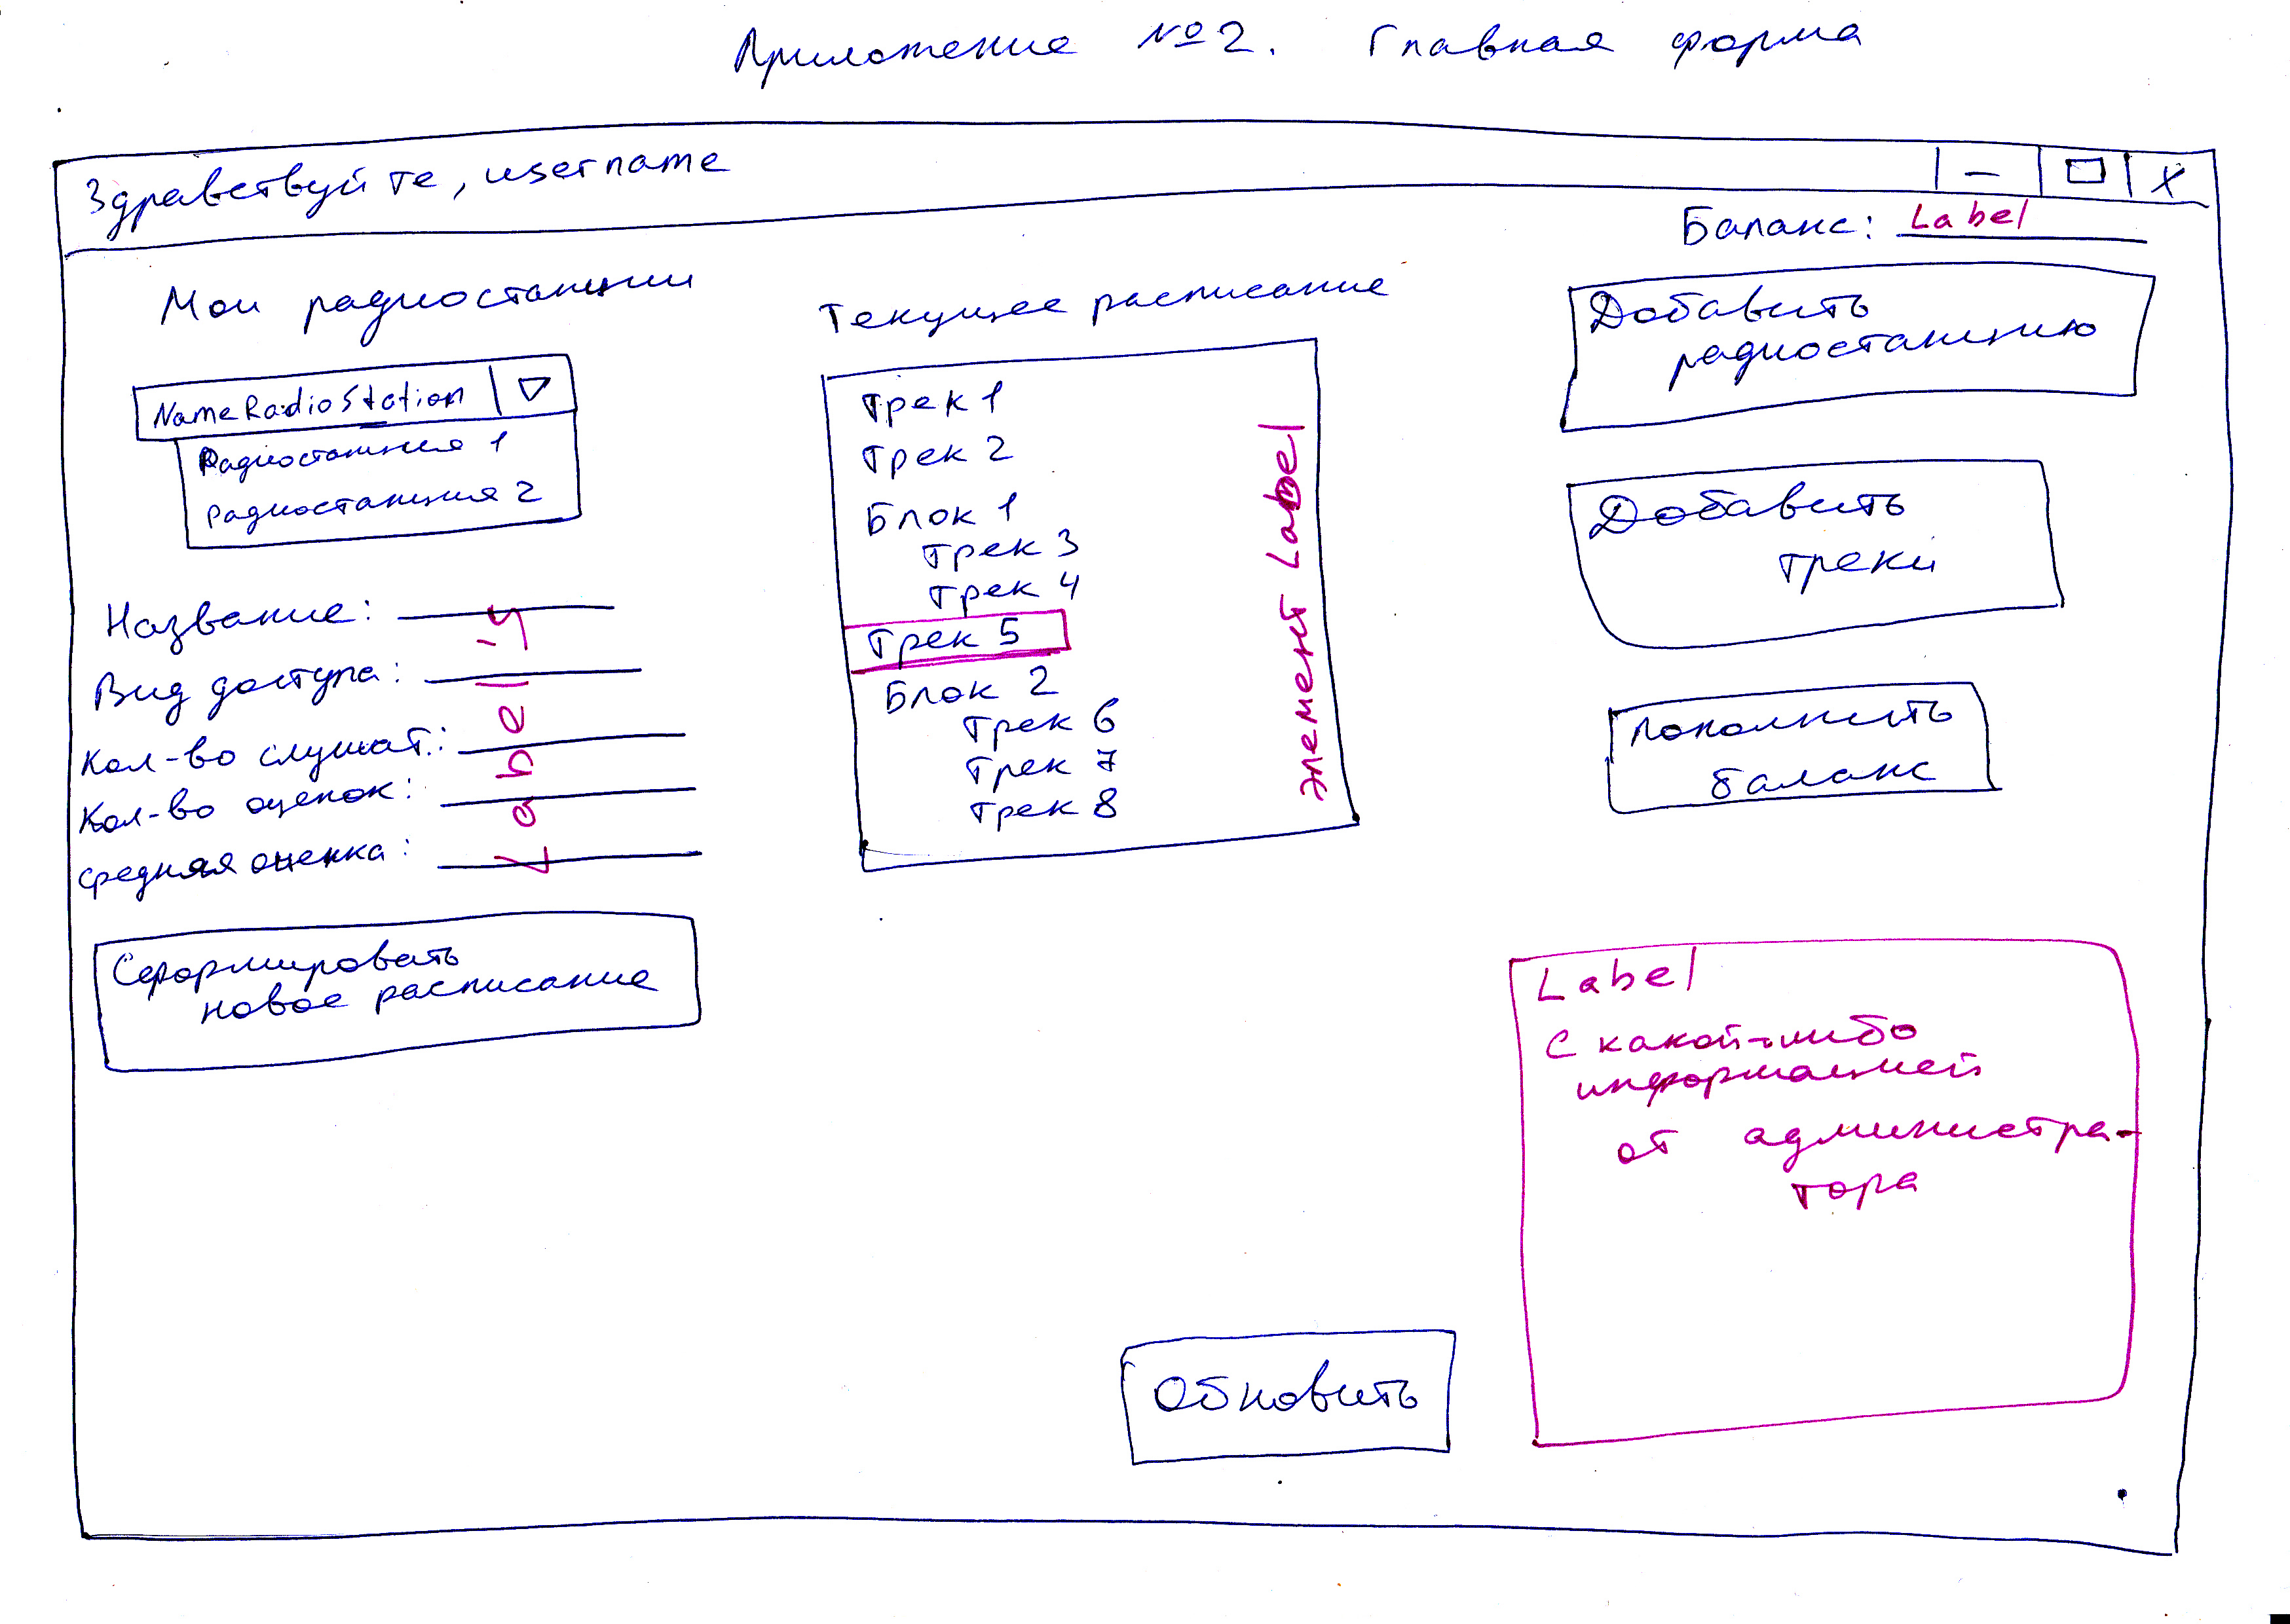 Приложение №2. Главная форма
Здравствуйте, username
Баланс: Label
Мои радиостанции
NameRadioStation
Радиостанция 1
радиостанция 2
Название:
Вид доступа:
Кол-во слушат.:
Кол-во оценок:
средняя оценка:
Label'ы
Сформировать
новое расписание
Текущее расписание
Трек 1
Трек 2
Блок 1
Трек 3
Трек 4
Трек 5
Блок 2
Трек 6
Трек 7
Трек 8
элемент Label
Добавить
радиостанцию
Добавить
треки
Пополнить
баланс
Label
с какой-либо
информацией
от администра-
тора
Обновить